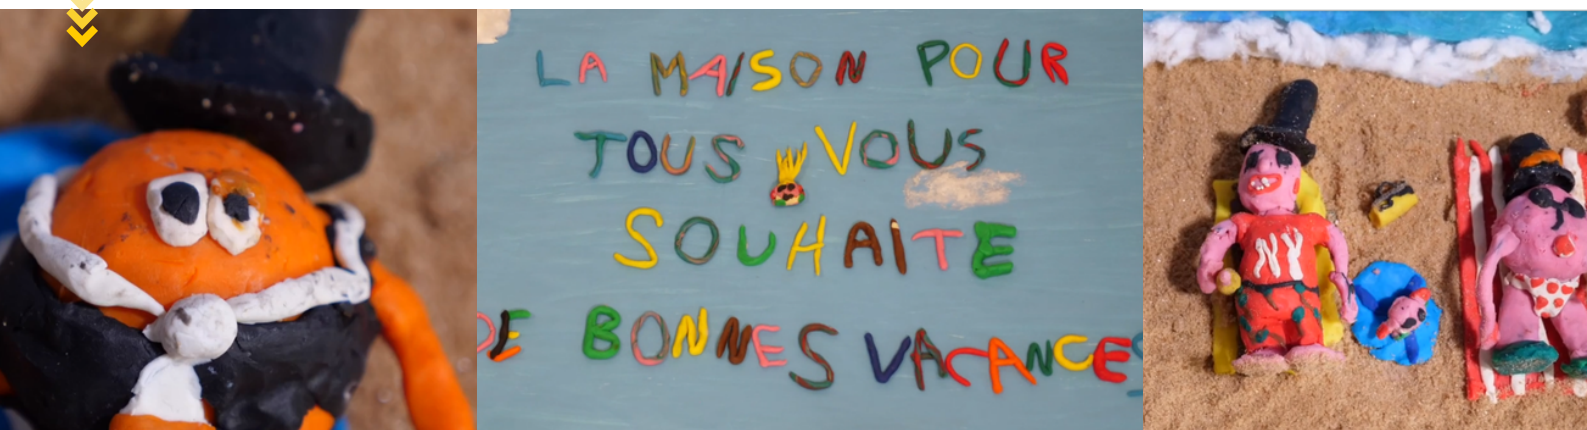 LA MAISON POUR
TOUS VOUS
SOUHAITE
DE BONNES VACANCES
NY